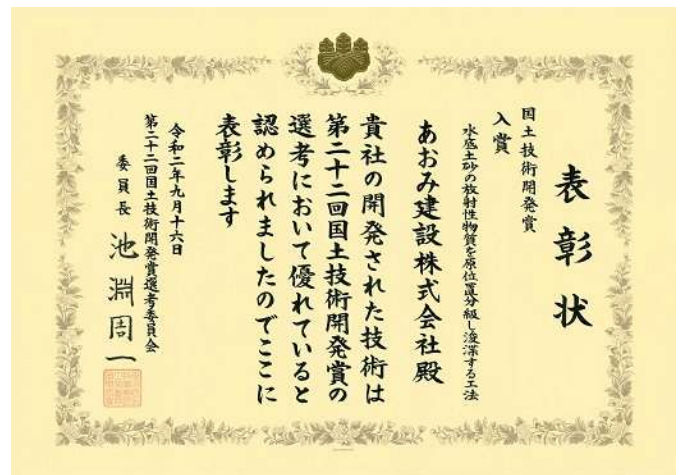 表彰状
国土技術開発賞
入賞
水底土砂の放射性物質を原位置分級し浚渫する工法
あおみ建設株式会社殿
貴社の開発された技術は
第二十二回国土技術開発賞の
選考において優れていると
認められましたのでここに
表彰します
令和二年九月十六日
第二十二回国土技術開発賞選考委員会
委員長 池淵周一